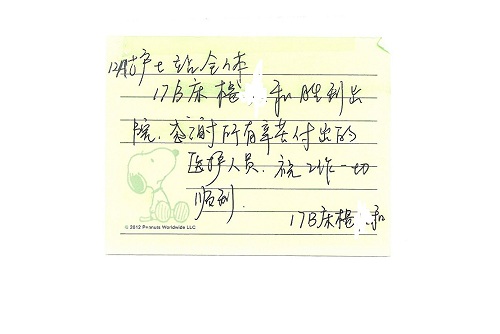 12A护士站全体
17B床杨 和胜利出
院. 感谢所有辛苦付出的
医护人员. 祝工作一切
顺利.
17B床杨 和
© 2012 Peanuts Worldwide LLC